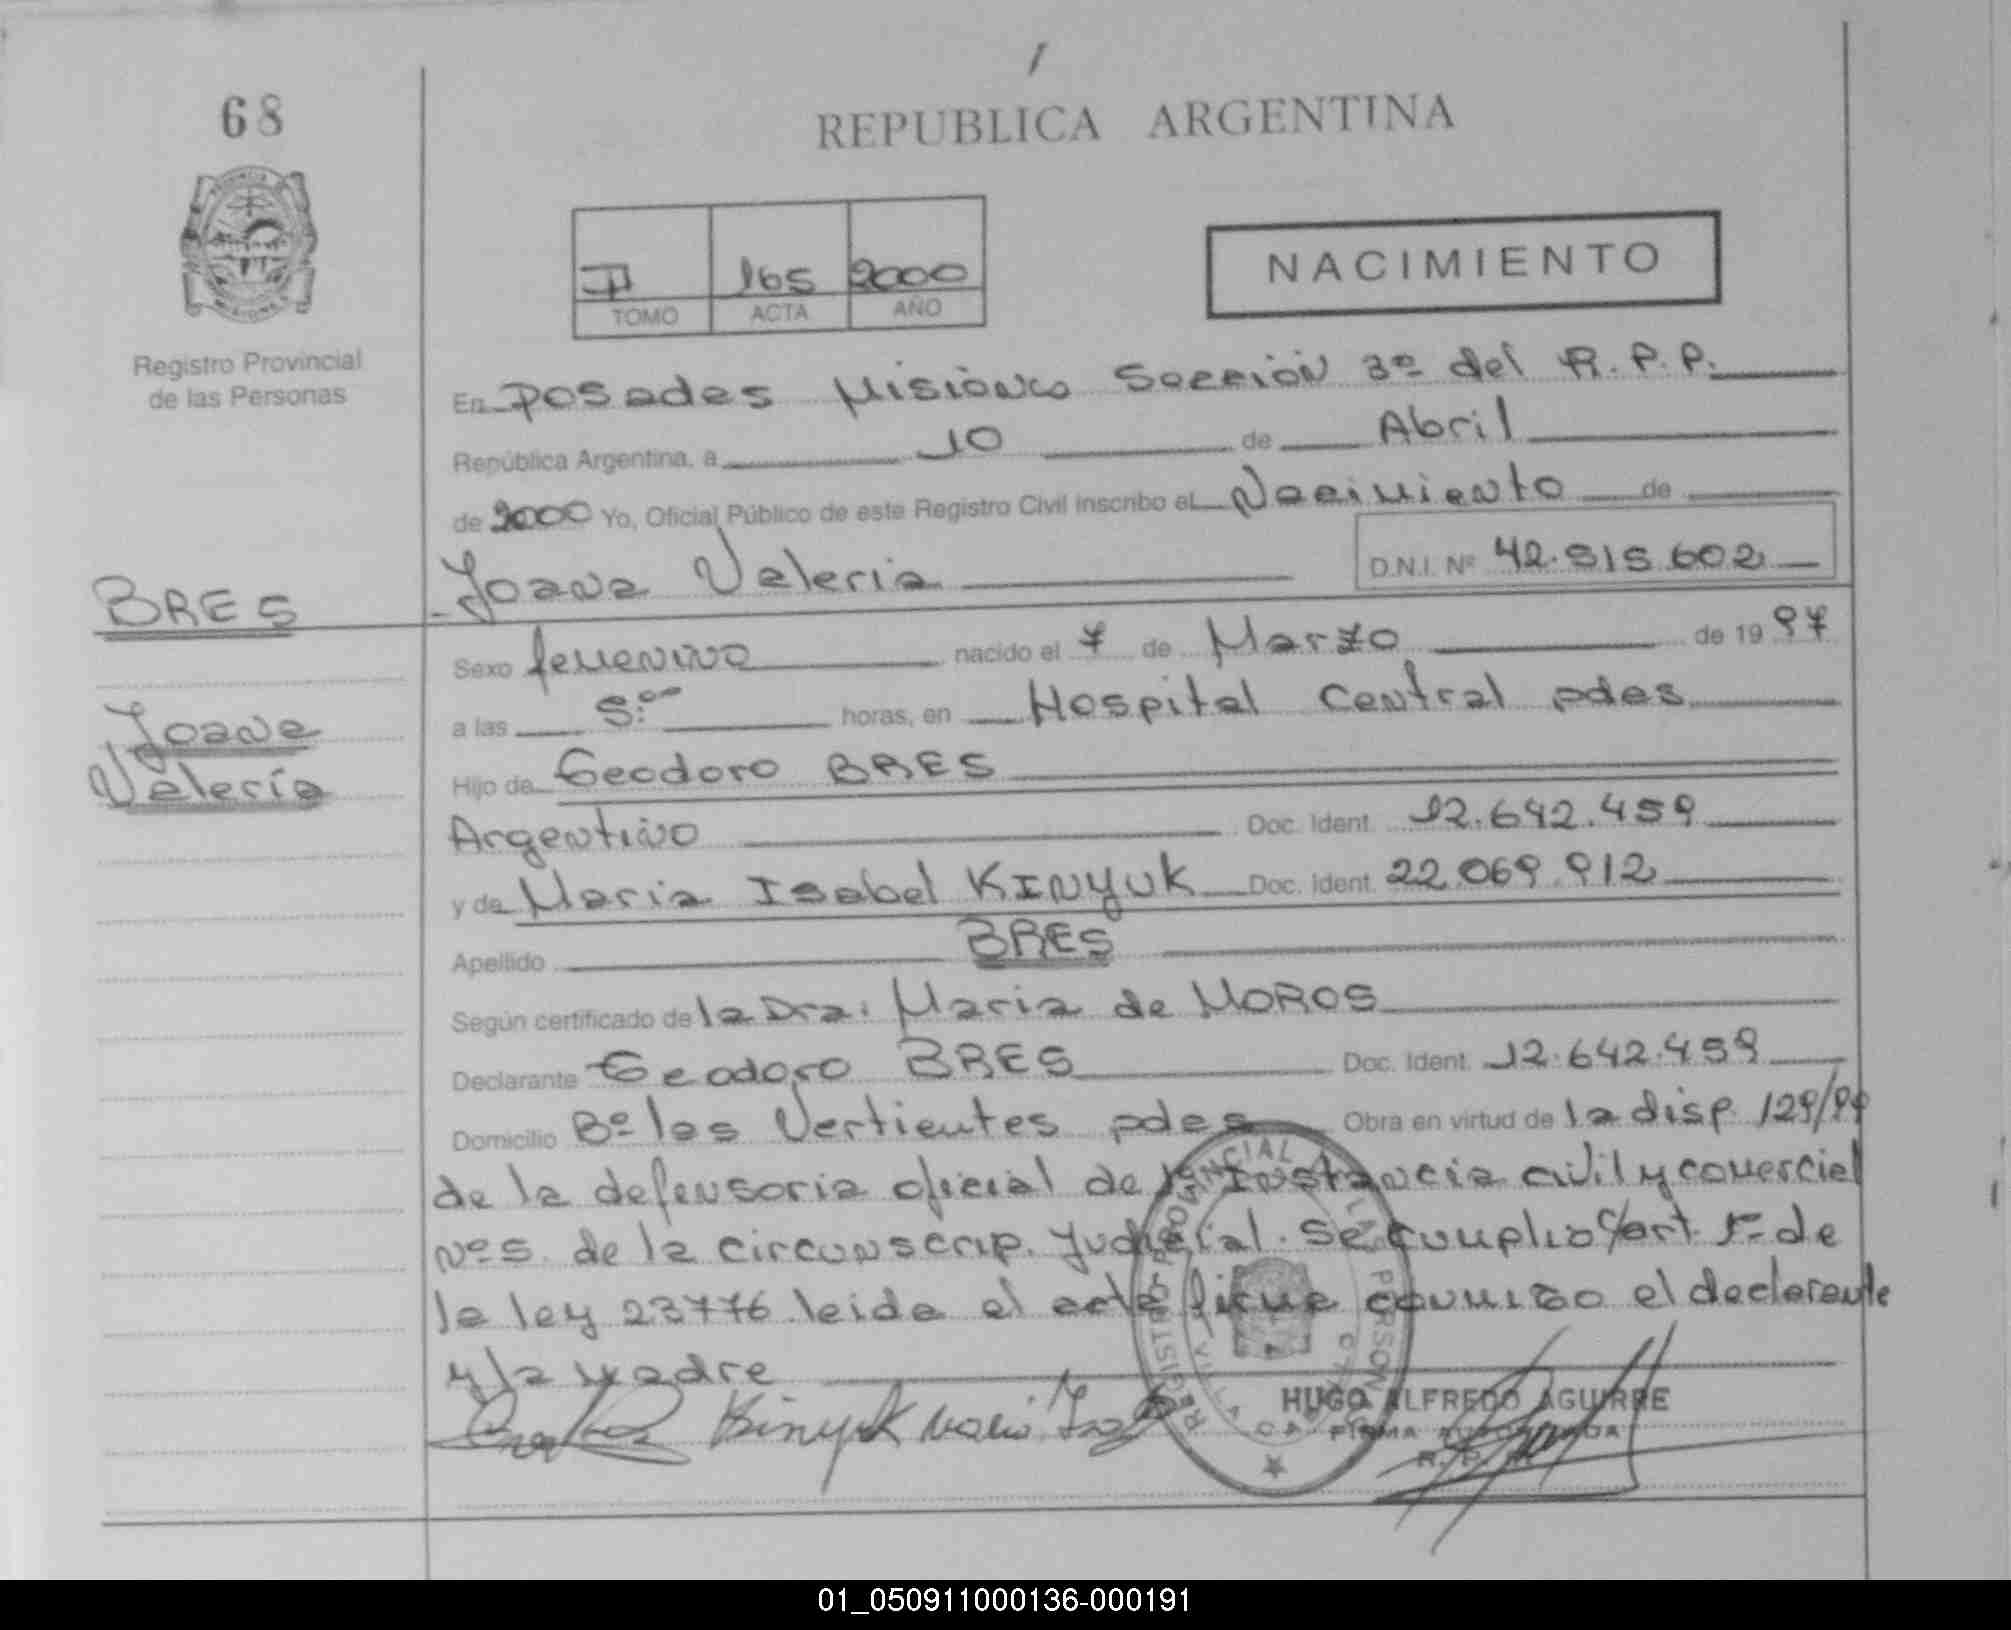 68
REPUBLICA ARGENTINA
II 165 2000
TOMO ACTA AÑO
NACIMIENTO
Registro Provincial
de las Personas
En Posadas Misiones Sección 3ª del R.P.P.
República Argentina, a 10 de Abril
de 2000 Yo, Oficial Público de este Registro Civil inscribo el Nacimiento de
Joana Valeria D.N.I. Nº 42.515.602
BRES
Joana
Valeria
Sexo femenino nacido el 7 de Marzo de 1997
a las 5:00 horas, en Hospital Central pdas
Hijo de Teodoro BRES
Argentino Doc. Ident. 12.642.459
y de Maria Isabel KINYUK Doc. Ident. 22.069.912
Apellido BRES
Según certificado de la Dra. Maria de MOROS
Declarante Teodoro BRES Doc. Ident. 12.642.459
Domicilio Bº las Vertientes pdas Obra en virtud de la disp. 129/99
de la defensoria oficial de Instancia civil y comercial
Nº5. de la circunscrip. Judicial. Se cumplio c/art. 1º de
la ley 23776 leida el acta firma conmigo el declarante
y la madre
Kinyuk Maria
REGISTRO PROVINCIAL DE LAS PERSONAS
HUGO ALFREDO AGUIRRE
FIRMA AUTORIZADA
R. P.
01_050911000136-000191